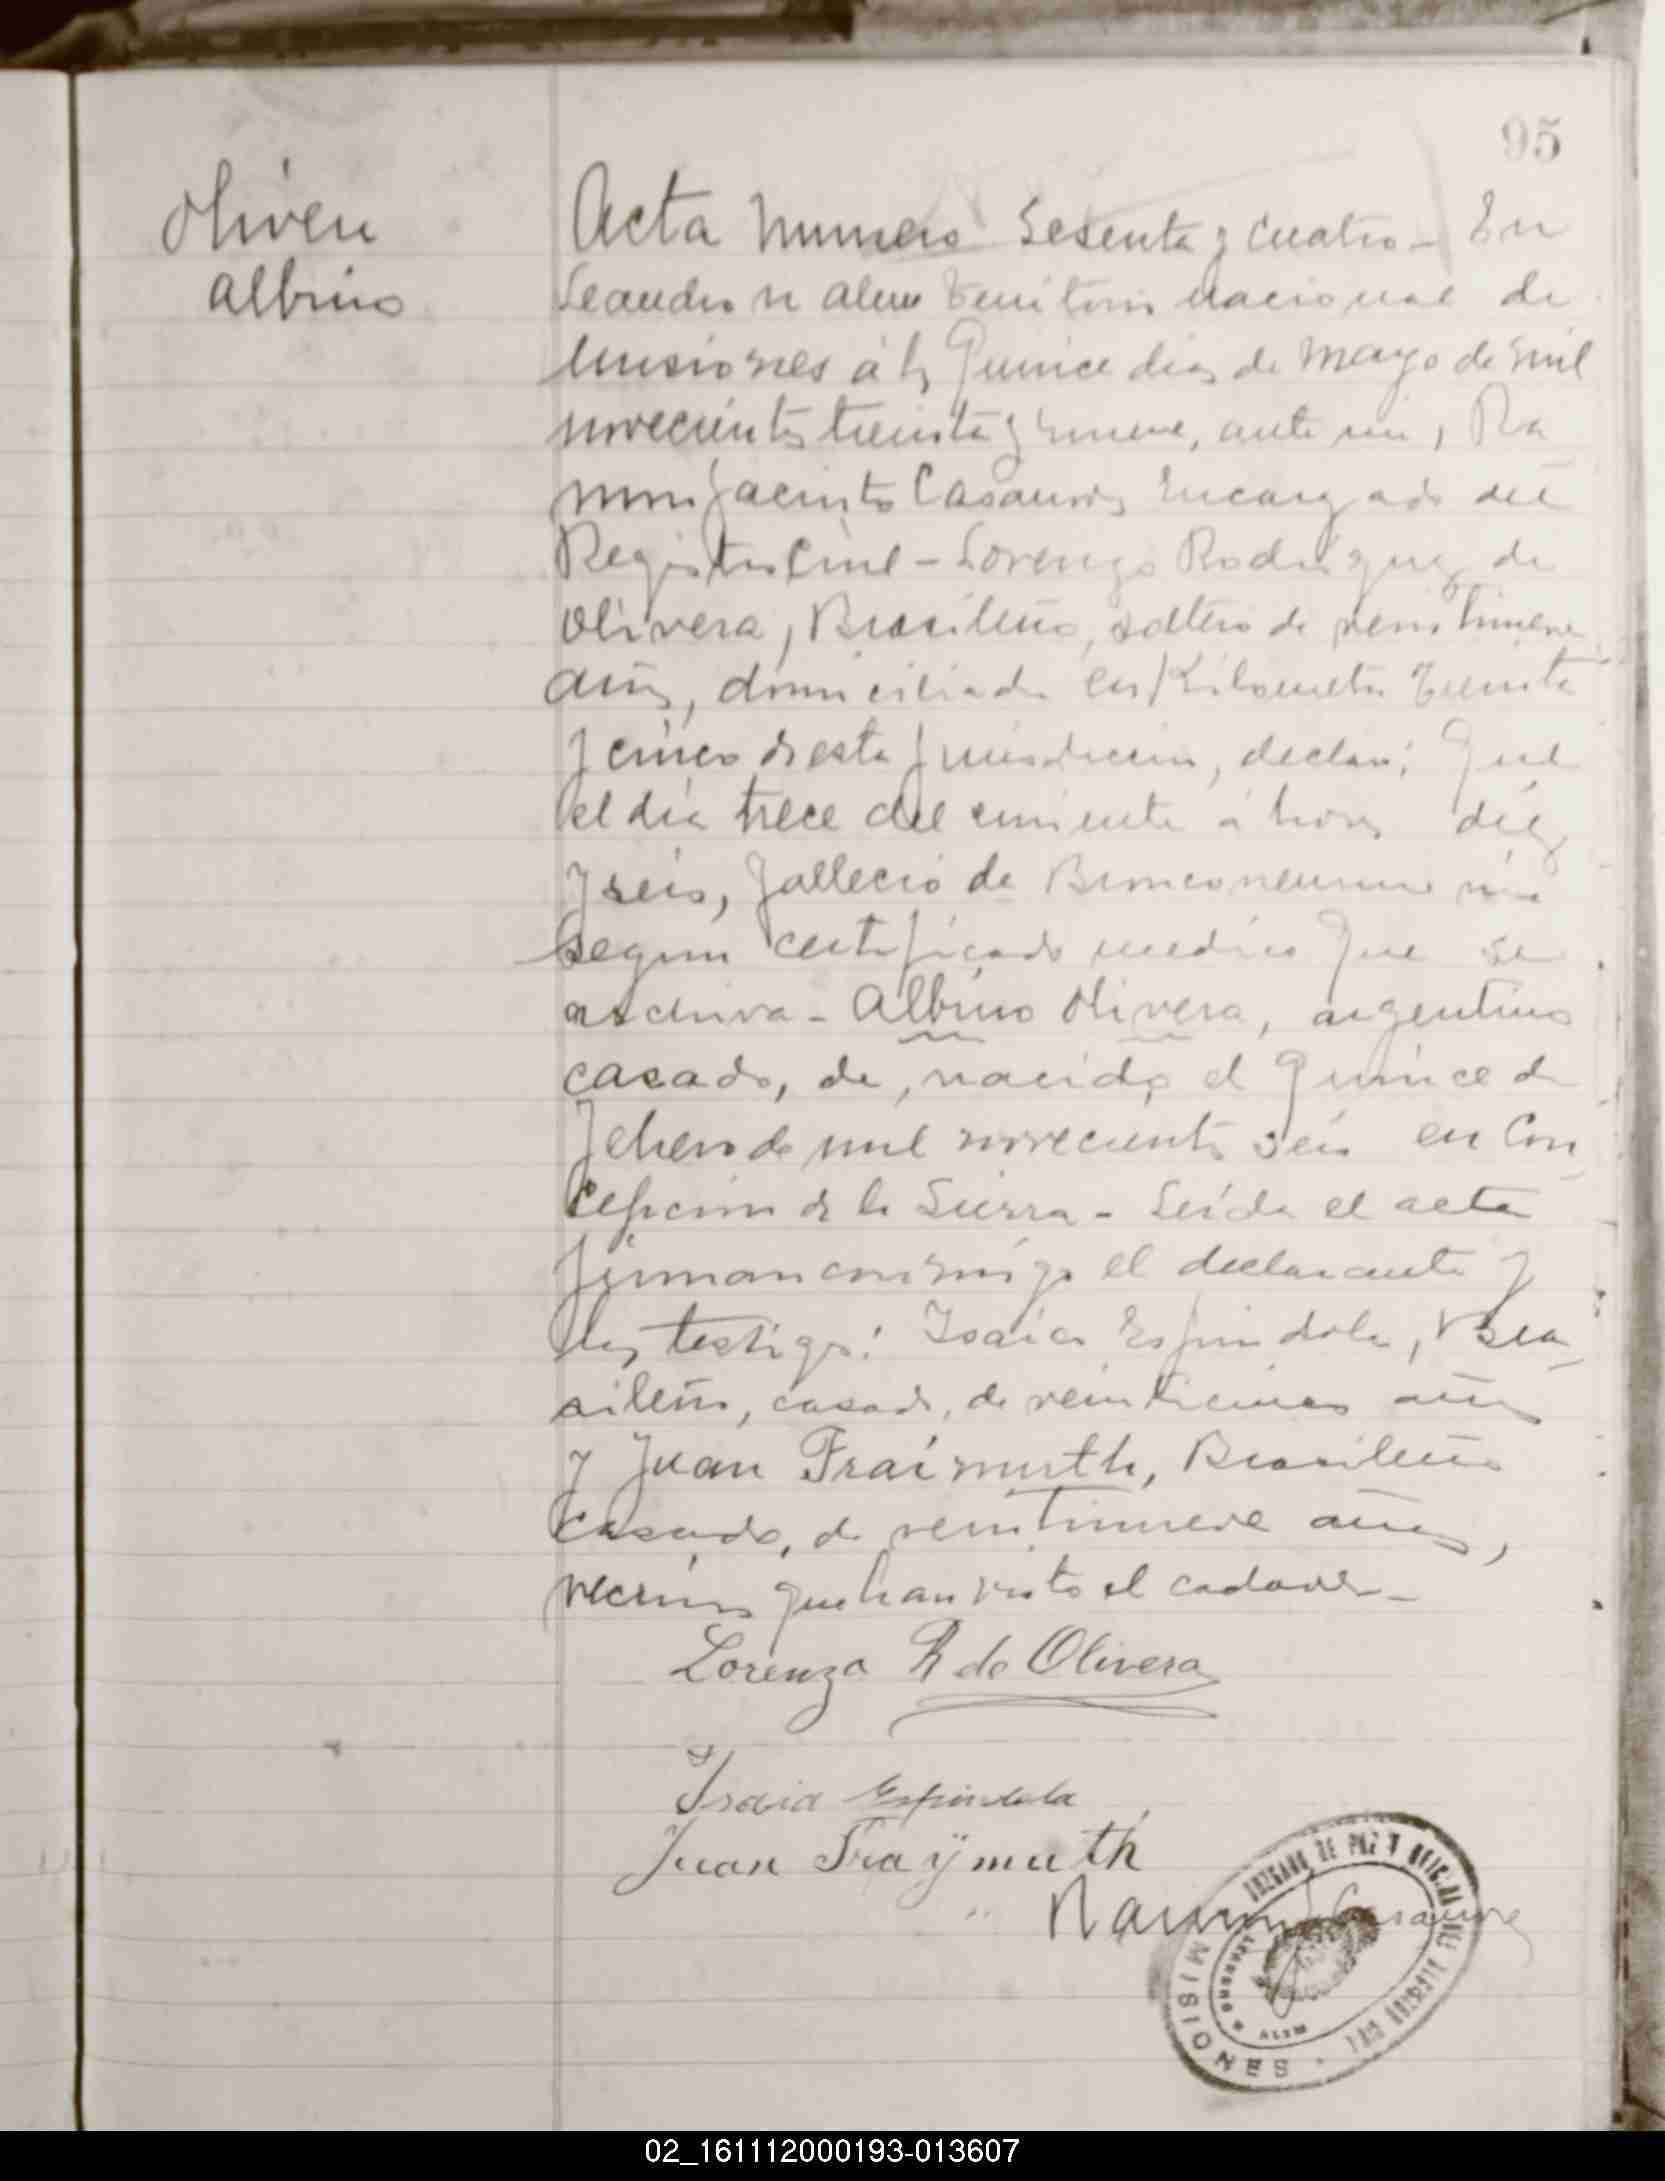 95
Olivera
Albino
Acta Numero Sesenta y Cuatro - En
Leandro N Alem Territorio nacional de
Misiones á los Quince dias de Mayo de mil
novecientos treinta y nueve, ante mi, Ra
mon Jacinto Casaures Encargado del
Registro Civil - Lorenzo Rodriguez de
Olivera, Brasileño, soltero de veintinueve
años, domiciliado en Kilometro Treinta
y cinco de esta jurisdiccion, declaró: Que
el dia trece del corriente á horas diez
y seis, falleció de Bronconeumonia
segun certificado medico que se
archiva - Albino Olivera, argentino
casado, de, nacido el Quince de
Febrero de mil novecientos seis en Con
cepcion de la Sierra - Leida el acta
firman conmigo el declarante y
los testigos: Isaias Espindola, Bra
sileño, casado, de veinticinco años
y Juan Fraimuth, Brasileño
casado, de veintinueve años,
vecinos que han visto el cadaver -
Lorenzo R de Olivera
Isaia Espindola
Juan Fraÿmuth
Ramon J Casaures
JUZGADO DE PAZ Y OFICINA DEL REGISTRO CIVIL
LEANDRO N ALEM
MISIONES
02_161112000193-013607